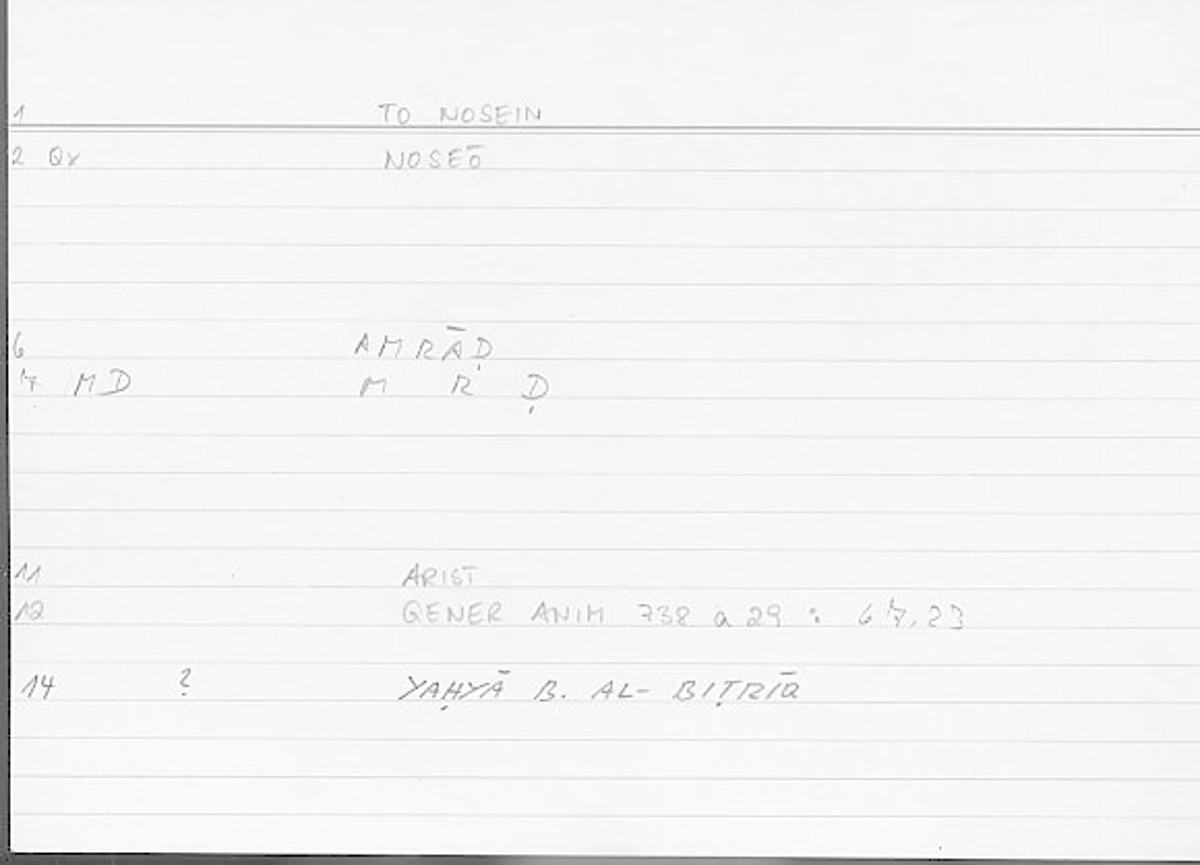 1 TO NOSEIN
2 Qv NOSEŌ
6 AMRĀḌ
7 MD M R Ḍ
11 ARIST
12 GENER ANIM 738 a 29 : 67,23
14 ? YAḤYĀ B. AL-BIṬRĪQ